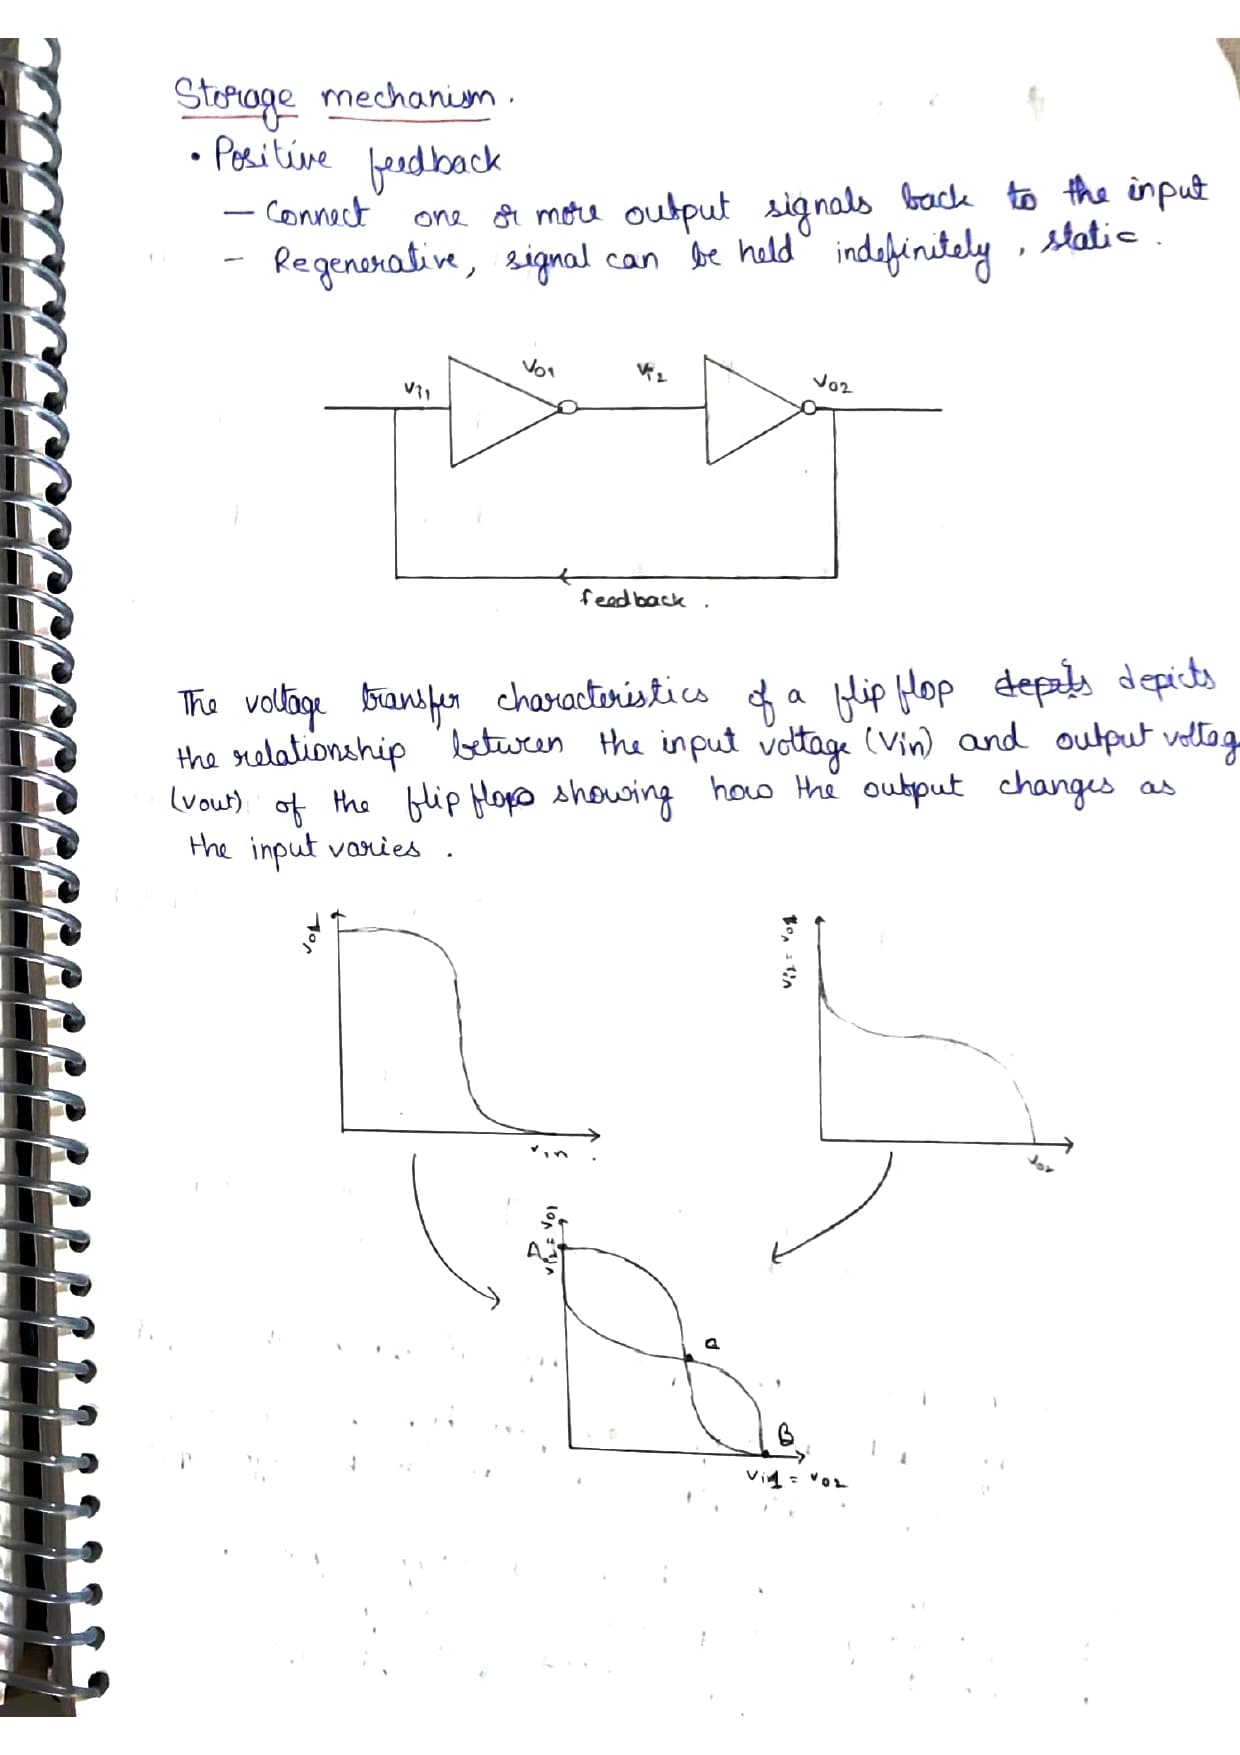 Storage mechanism.
• Positive feedback
— Connect one or more output signals back to the input
– Regenerative, signal can be held indefinitely, static.
Vi1
Vo1
Vi2
Vo2
feedback.
The voltage transfer characteristics of a flip flop depicts
the relationship between the input voltage (Vin) and output voltag
(vout) of the flip flop showing how the output changes as
the input varies.
Vo1
Vin.
Vo2
A
Vi2 = Vo1
a
B
Vi1 = Vo2